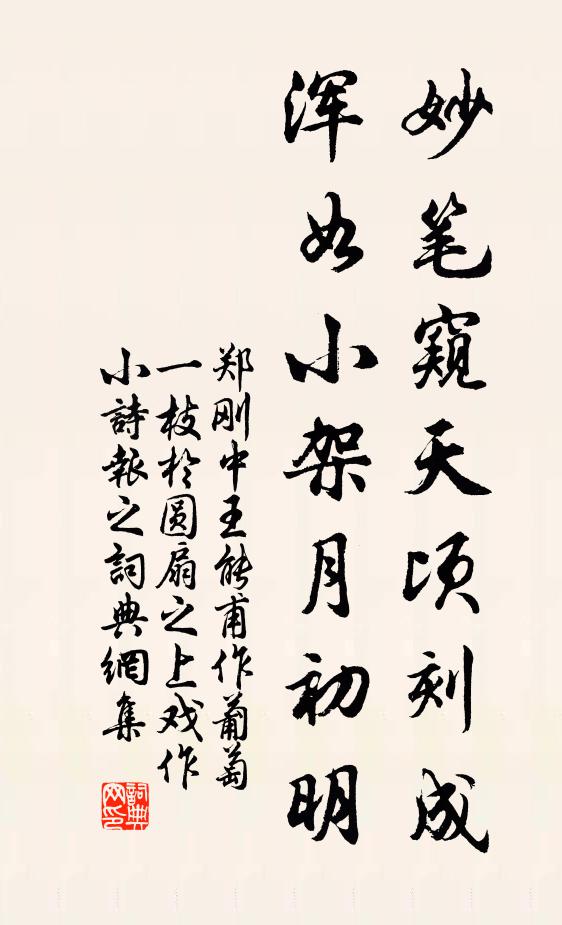 妙笔窺天顷刻成
浑如小架月初明
郑刚中王能甫作葡萄
一枝於圆扇之上戏作
小詩報之詞典網集
詞典
网印